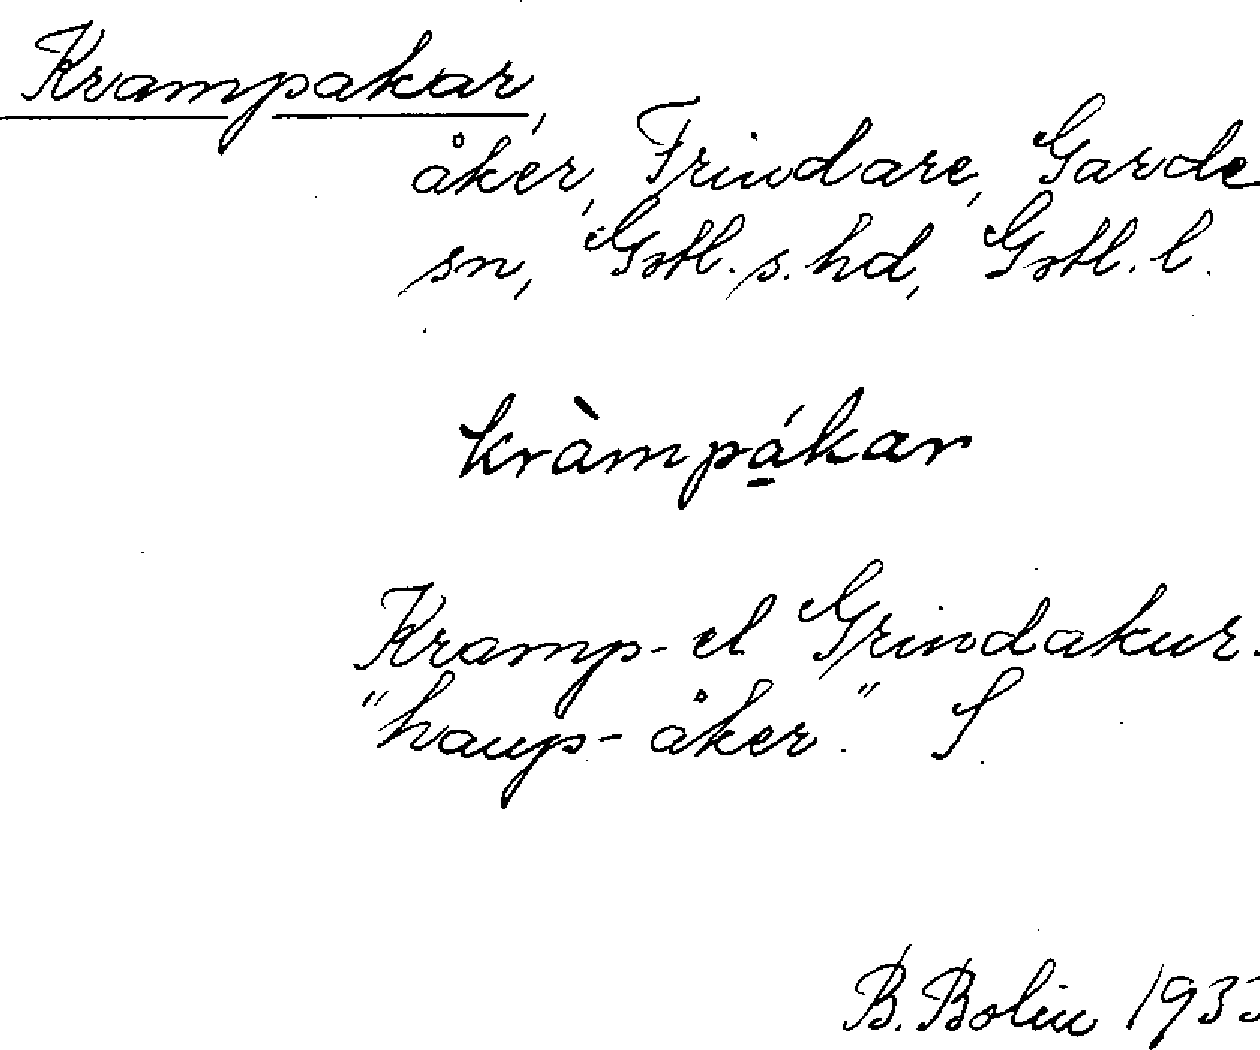 Krampakar,
åker, Frindare, Garde
sn, Gotl. s. hd, Gotl. l.
kràmpá̱kar
Kramp- el Grindakur.
"haup-åker." S
B. Bolin 1933